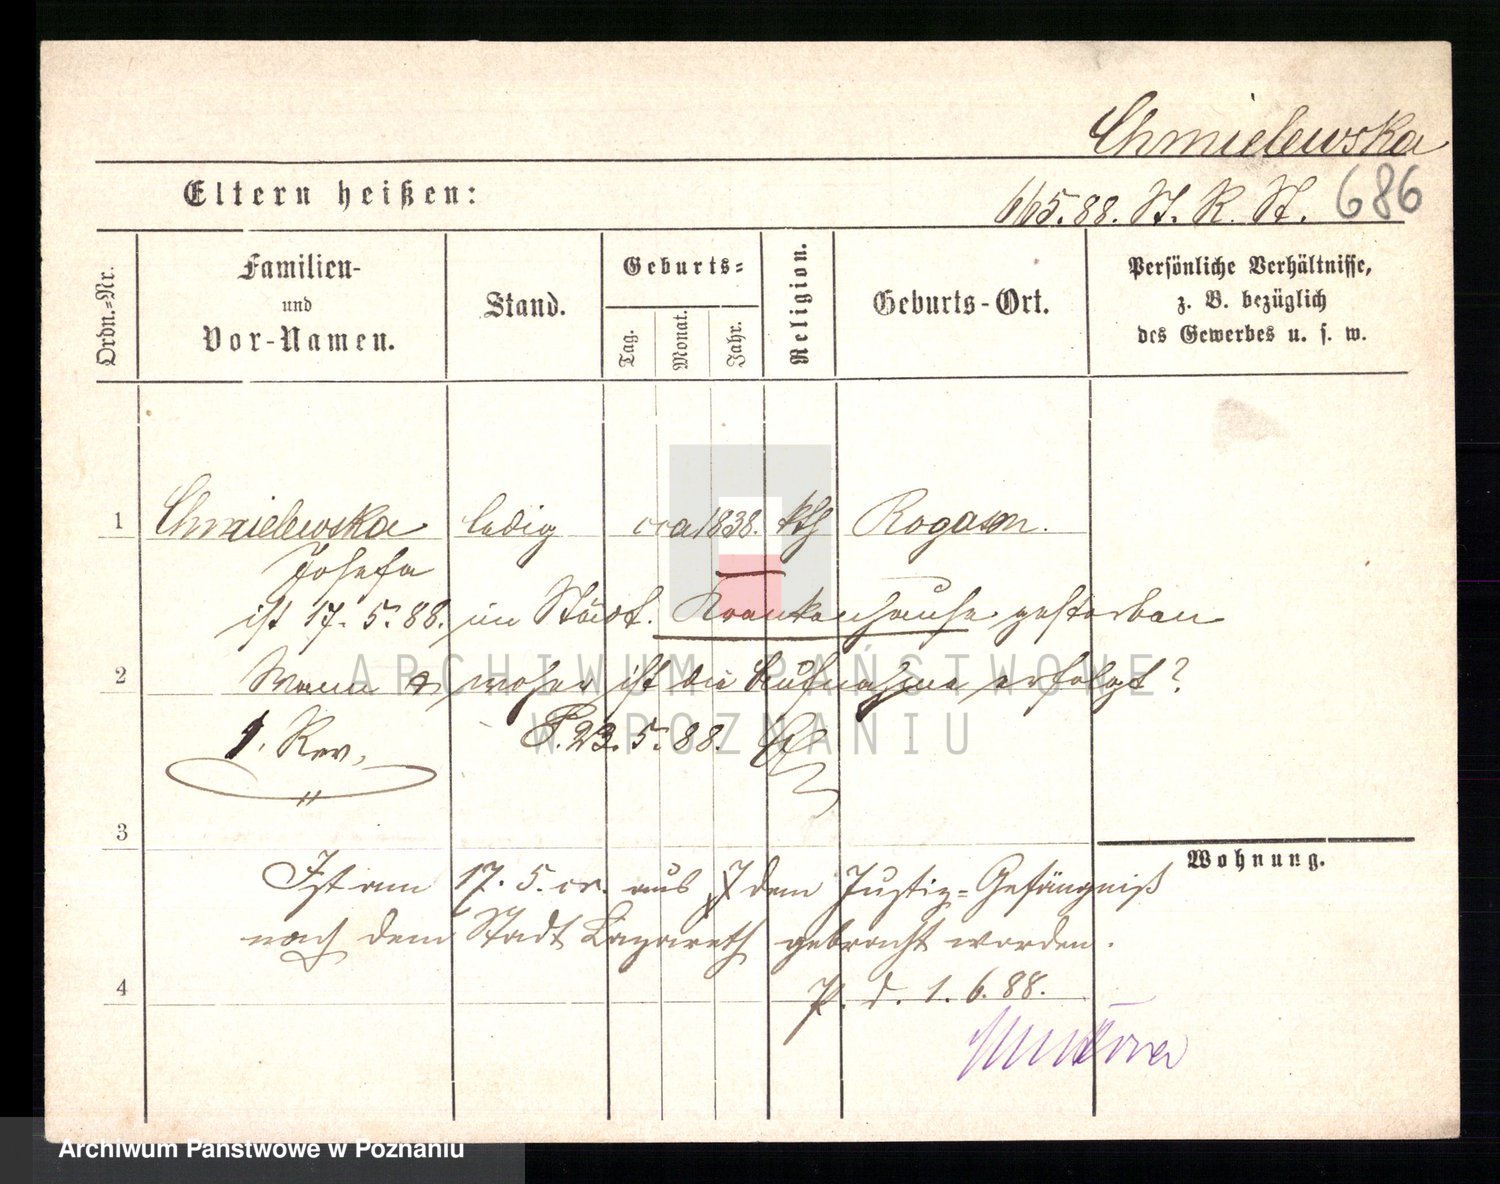 Chmielewska
Eltern heißen:
665.88. St. K. St. 686
Ordn.-Nr.
Familien-
und
Vor-Namen.
Stand.
Geburts-
Tag.
Monat.
Jahr.
Religion.
Geburts-Ort.
Persönliche Verhältnisse,
z. B. bezüglich
des Gewerbes u. s. w.
1 Chmielewska ledig cca 1838. kth Rogasen.
Josefa
ist 17. 5. 88. im Städt. Krankenhause gestorben
2 Wann & woher ist die Aufnahme erfolgt?
1. Rev. P. 23. 5. 88.
3
Wohnung.
Ist am 17. 5. cr. aus dem Justiz-Gefängniß
nach dem Stadt Lazareth gebracht worden.
4 P. d. 1. 6. 88.
ARCHIWUM PAŃSTWOWE
W POZNANIU
Archiwum Państwowe w Poznaniu